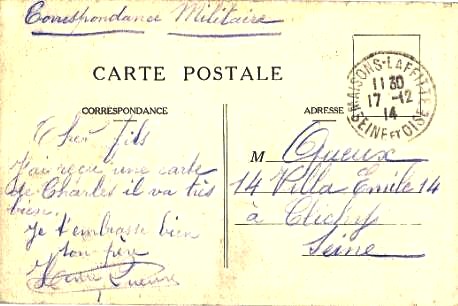 Correspondance Militaire
CARTE POSTALE
MAISONS-LAFFITTE
11 30
17 -12
14
SEINE ET OISE
CORRESPONDANCE
ADRESSE
Cher fils
J'ai reçu une carte
de Charles il va très
bien.
Je t'embrasse bien
ton père
Queux
M Queux
14 Villa Emile 14
à Clichy
Seine